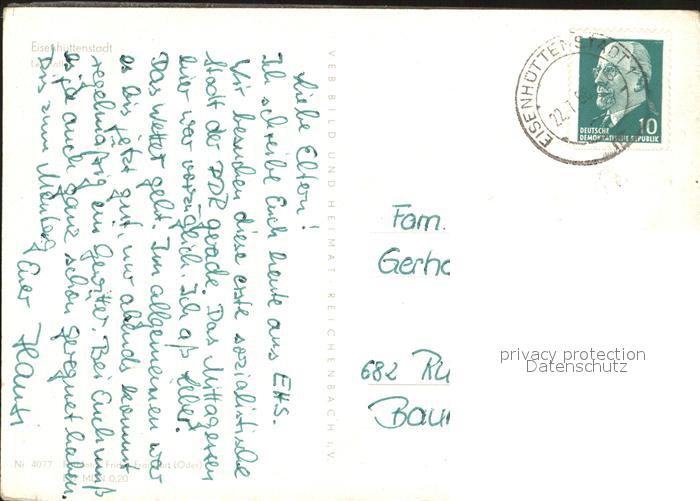 Eisenhüttenstadt
Liebe Eltern!
Ich schreibe Euch heute aus EHS.
Wir besuchen diese erste sozialistische
Stadt der DDR gerade. Das Mittagessen
hier war vorzüglich. Ich aß Leber.
Das Wetter geht. Im allgemeinen war
es bis jetzt gut, nur abends kommt
regelmäßig ein Gewitter. Bei Euch muß
es ja auch ganz schön geregnet haben.
Bis zum Montag Euer Hansi
Nr. 4077
0,20
VEB BILD UND HEIMAT · REICHENBACH I. V.
EISENHÜTTENSTADT 1
22.7.
DEUTSCHE
DEMOKRATISCHE REPUBLIK 10
Fam.
Gerh
682 Ru
Bau
privacy protection
Datenschutz